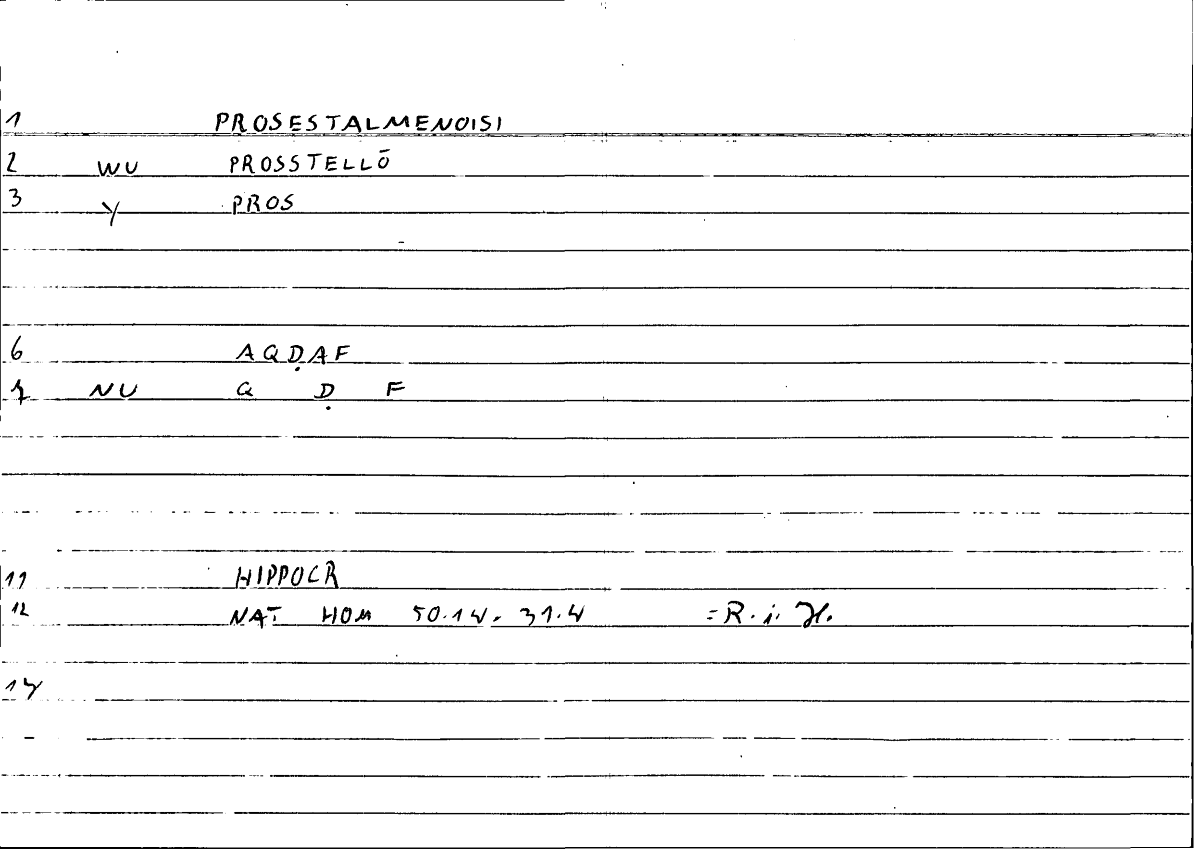 1 PROSESTALMENOISI
2 WU PROSSTELLŌ
3 Y PROS
6 AQḌAF
7 NU Q Ḍ F
11 HIPPOCR
12 NAT HOM 50.14. 31.4 = R. i. H.
14